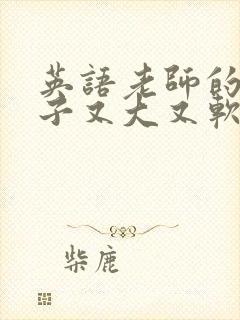 英語老師的
子又大又軟
柴鹿